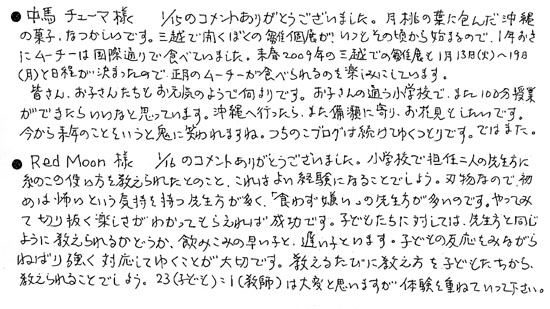 ● 中馬 チューマ 様 1/15のコメントありがとうございました。月桃の葉に包んだ沖縄
の菓子、なつかしいです。三越で開くぼくの個展が、いつもその頃から始まるので、1年おき
にムーチーは国際通りで食べていました。来春2009年の三越での個展も1月13日(火)〜19日
(月)と日程が決まったので、正月のムーチーが食べられるのを楽しみにしています。
皆さん、お子さんたちもお元気のようで何よりです。お子さんの通う小学校で、また100分授業
ができたらいいなと思っています。沖縄へ行ったら、また備瀬に寄り、お花見としたいです。
今から来年のことをいうと鬼に笑われますね。つちのこブログは続けてゆくつもりです。ではまた。
● Red Moon 様 1/16 のコメントありがとうございました。小学校で担任二人の先生方に
糸のこの使い方を教えられたとのこと、これはよい経験になることでしょう。刃物なので、初
めは怖いという気持を持つ先生方が多く、「食わず嫌い」の先生方が多いのです。やってみ
て切り抜く楽しさがわかってもらえれば成功です。子どもたちに対しては、先生方と同じ
ように教えられるかどうか、飲みこみの早い子と、遅い子といます。子どもの反応をみながら
ねばり強く対応してゆくことが大切です。教えるたびに教え方を子どもたちから、
教えられることでしょう。23(子ども):1(教師)は大変と思いますが体験を重ねていって下さい。